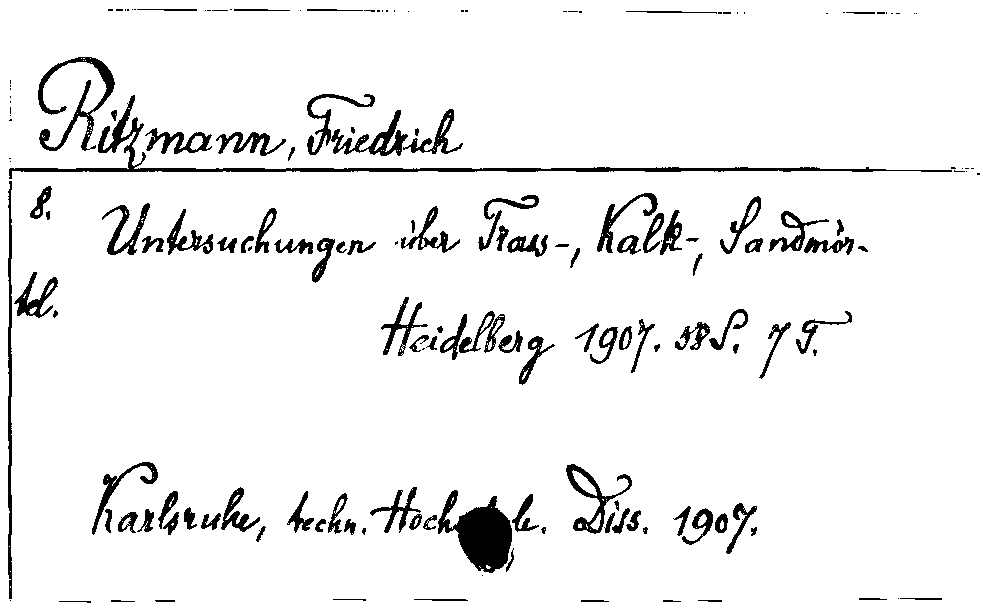 Ritzmann, Friedrich
8.
Untersuchungen über Trass-, Kalk-, Sandmör-
tel.
Heidelberg 1907. 58 S. 7 T.
Karlsruhe, techn. Diss. 1907.